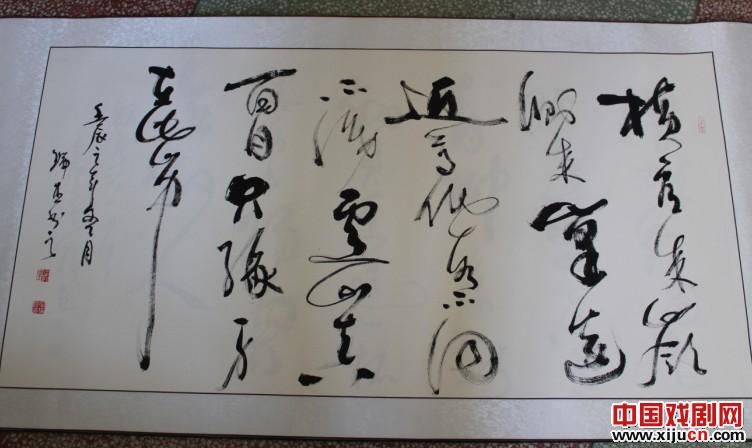 横看成嶺
侧成峯遠
近高低各不同
不識廬山真
面目只緣身
在此山中
壬辰之年冬月
书之
中国戏剧网
www.xijucn.com